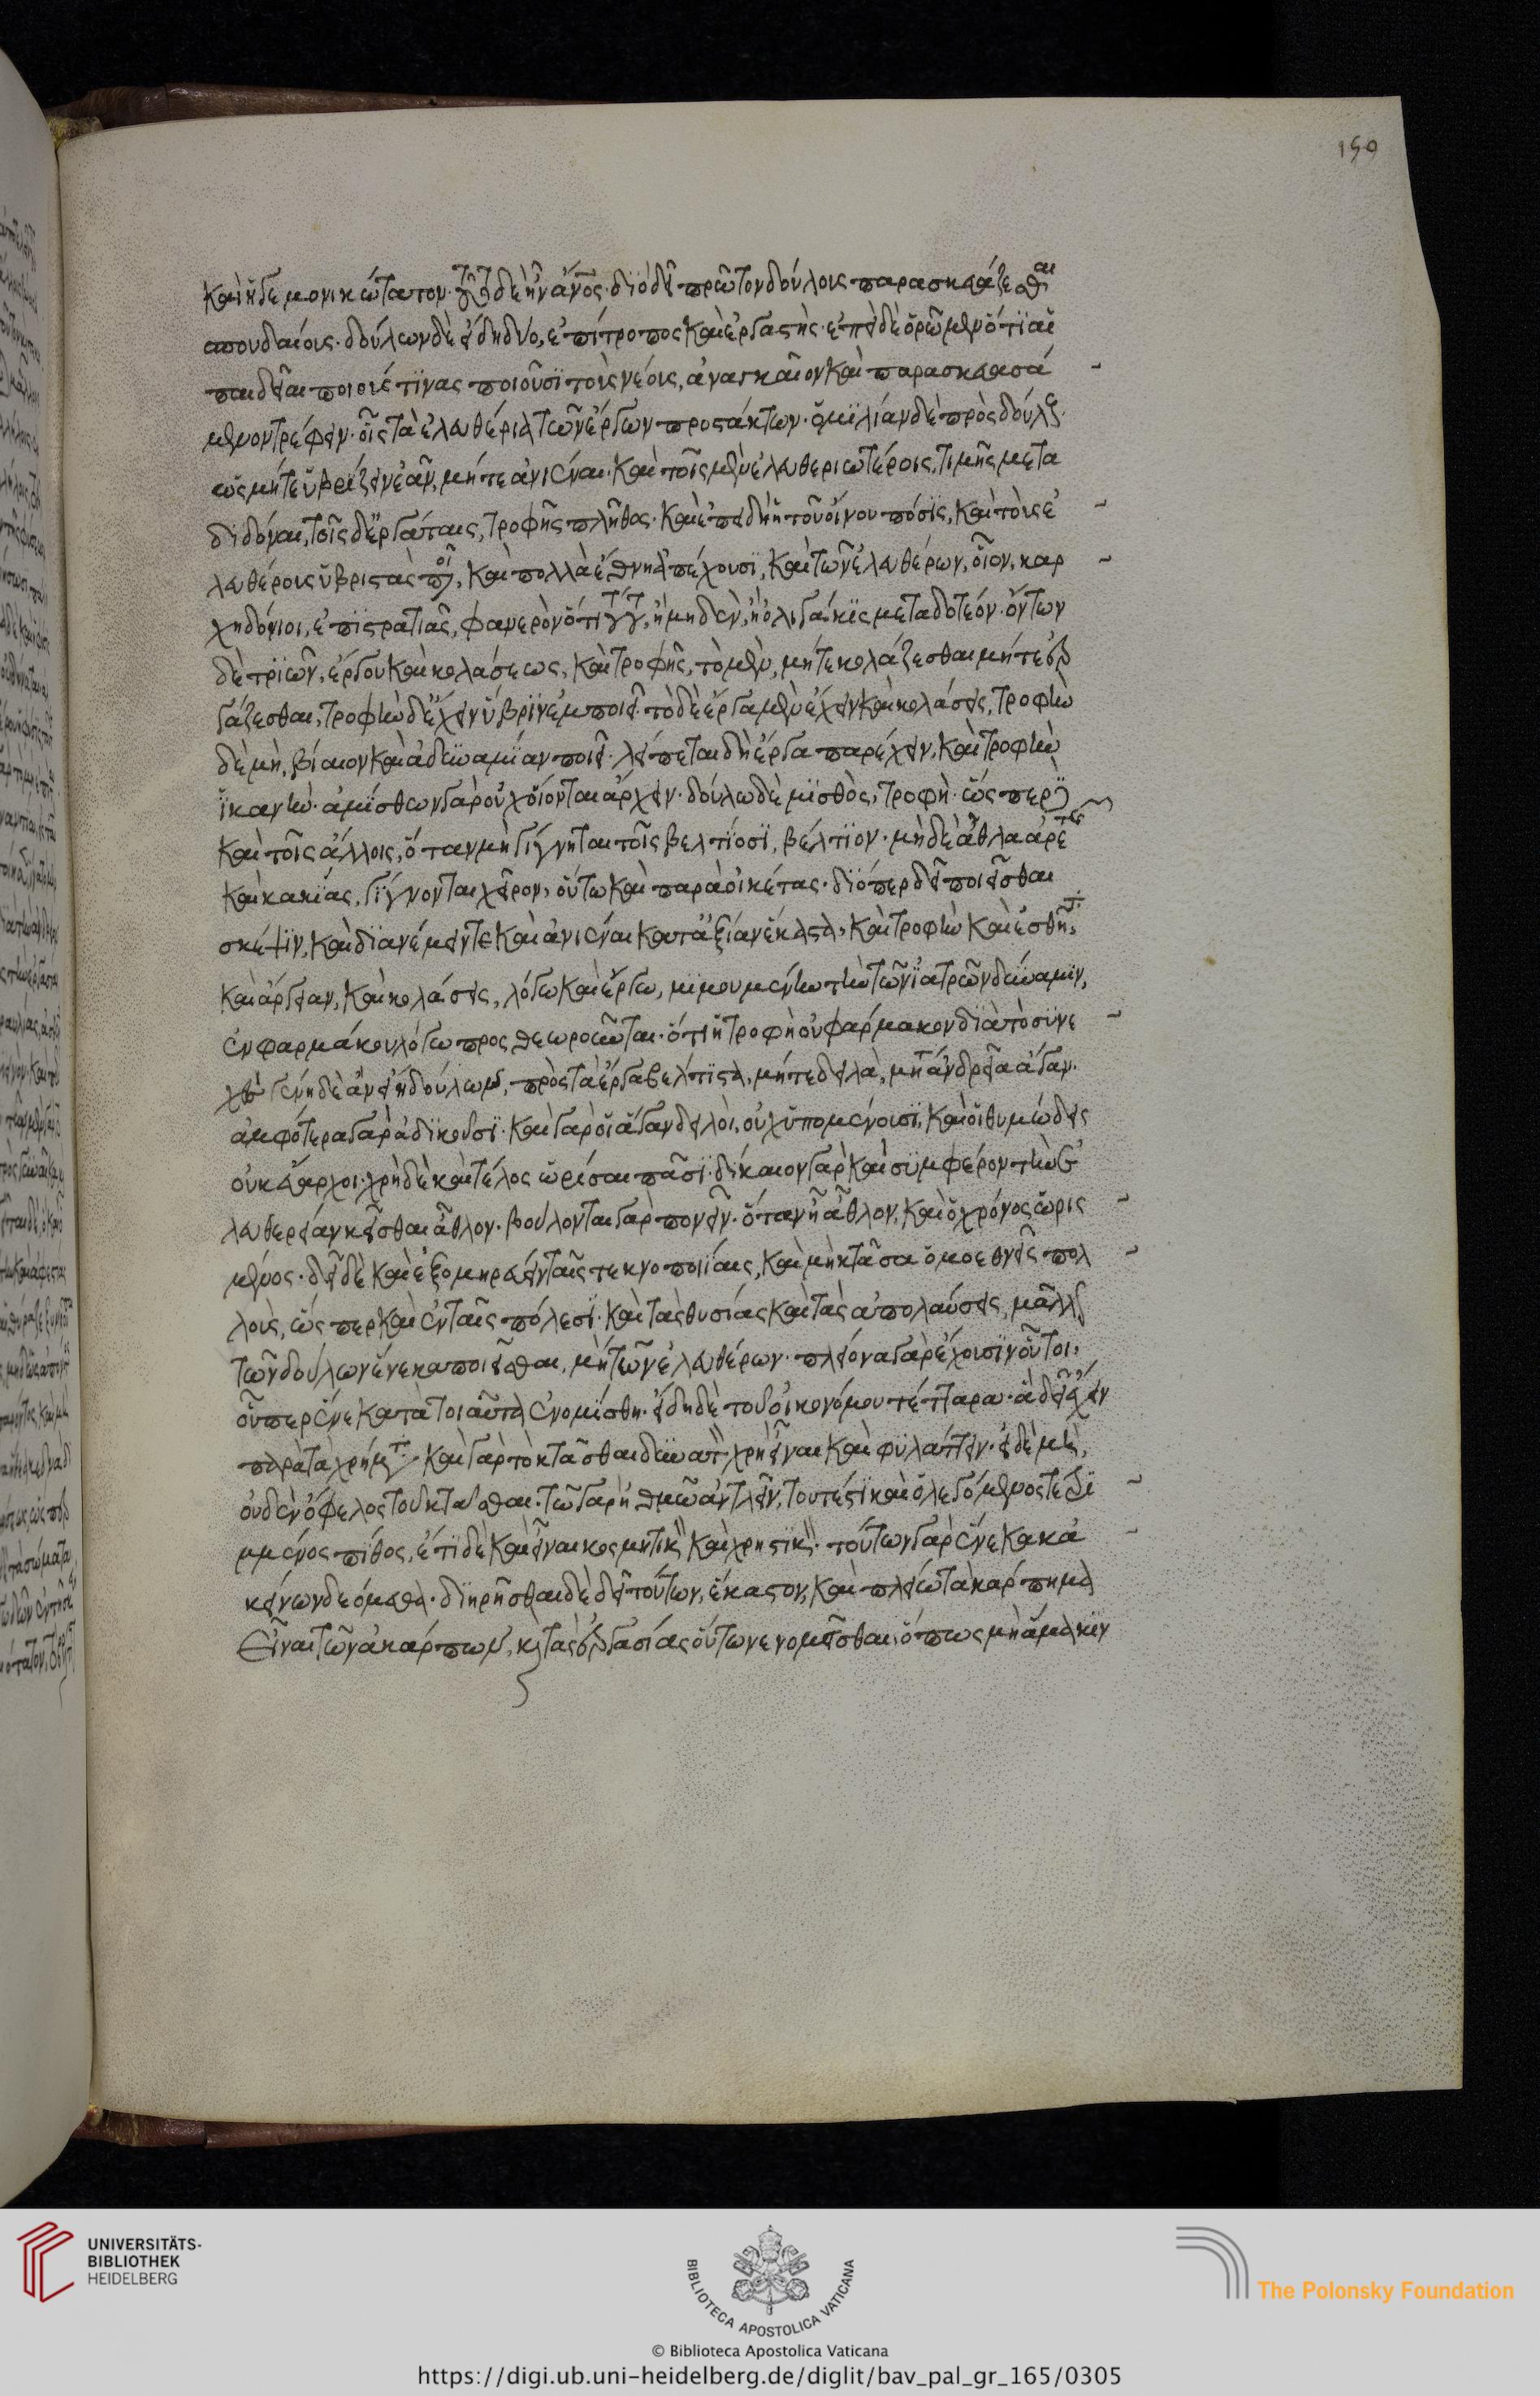 159
καὶ ἡγεμονικώτατον. τοῦτο δὲ ἦν ἄνος. διὸ δεῖ πρῶτον δούλους παρασκευάζεσθαι
σπουδαίους. δούλων δὲ εἴδη δύο, ἐπίτροπος καὶ ἐργάτης. ἐπεὶ δὲ ὁρῶμεν ὅτι αἱ
παιδεῖαι ποιούς τινας ποιοῦσι τοὺς νέους, ἀναγκαῖον καὶ παρασκευασά
μενον τρέφειν. οἷς τὰ ἐλευθέρια τῶν ἔργων προστάκτων. ὁμιλίαν δὲ πρὸς δούλους.
ὡς μήτε ὑβρίζειν ἐᾶν, μήτε ἀνιέναι. καὶ τοῖς μὲν ἐλευθεριωτέροις, τιμῆς μετα
διδόναι, τοῖς δ' ἐργάταις, τροφῆς πλῆθος. καὶ ἐπειδὴ ἡ τοῦ οἴνου πόσις, καὶ τοὺς ἐ
λευθέρους ὑβριστὰς ποιεῖ, καὶ πολλὰ ἔθνη ἀπέχουσι, καὶ τῶν ἐλευθέρων, οἷον, καρ
χηδόνιοι, ἐπὶ στρατιᾶς, φανερὸν ὅτι τούτου, ἢ μηδὲν, ἢ ὀλιγάκις μεταδοτέον. ὄντων
δὲ τριῶν, ἔργου καὶ κολάσεως, καὶ τροφῆς, τὸ μὲν, μήτε κολάζεσθαι μήτε ἐρ
γάζεσθαι, τροφὴν δ' ἔχειν ὕβριν ἐμποιεῖ. τὸ δὲ ἔργα μὲν ἔχειν καὶ κολάσεις, τροφὴν
δὲ μὴ, βίαιον καὶ ἀδυναμίαν ποιεῖ. λείπεται δὴ ἔργα παρέχειν, καὶ τροφὴν
ἱκανὴν. ἀμίσθων γὰρ οὐχ οἷόν τε ἄρχειν. δούλῳ δὲ μισθὸς, τροφή. ὥσπερ
καὶ τοῖς ἄλλοις, ὅταν μὴ γίγνηται τοῖς βελτίοσι, βέλτιον. μὴ δὲ ἆθλα ἀρετῆς
καὶ κακίας, γίγνονται χεῖρον, οὕτω καὶ παρὰ οἰκέτας. διόπερ δεῖ ποιεῖσθαι
σκέψιν, καὶ διανέμειν τε καὶ ἀνιέναι κατ' ἀξίαν ἕκαστα, καὶ τροφὴν καὶ ἐσθῆτα,
καὶ ἀργείαν, καὶ κολάσεις, λόγῳ καὶ ἔργῳ, μιμουμένων τὴν τῶν ἰατρῶν δύναμιν,
ἐν φαρμάκου λόγῳ προσθεωροῦνται. ὅτι ἡ τροφὴ οὐ φάρμακον διὰ τὸ συνε
χές. γένη δὲ ἂν εἴη δούλων, πρὸς τὰ ἔργα βέλτιστα, μήτε δειλὰ, μήτε ἀνδρεῖα ἄγαν.
ἀμφότερα γὰρ ἀδικοῦσι. καὶ γὰρ οἱ ἄγαν δειλοὶ, οὐχ ὑπομένουσι, καὶ οἱ θυμώδεις
οὐκ εὔαρχοι. χρὴ δὲ καὶ τέλος ὡρίσαι πᾶσι. δίκαιον γὰρ καὶ συμφέρον τὴν ἐ
λευθερίαν κεῖσθαι ἆθλον. βούλονται γὰρ πονεῖν. ὅταν ᾖ ἆθλον, καὶ ὁ χρόνος ὡρισ
μένος. δεῖ δὲ καὶ ἐξομηρεύειν ταῖς τεκνοποιίαις, καὶ μὴ κτᾶσαι ὁμοεθνεῖς πολ
λοὺς, ὥσπερ καὶ ἐν ταῖς πόλεσι. καὶ τὰς θυσίας καὶ τὰς ἀπολαύσεις, μᾶλλον
τῶν δούλων ἕνεκα ποιεῖσθαι, μὴ τῶν ἐλευθέρων. πλείονα γὰρ ἔχουσιν οὗτοι,
οὗπερ ἕνεκα τὰ τοιαῦτα ἐνομίσθη. εἴδη δὲ τοῦ οἰκονόμου τέτταρα. ἃ δεῖ ἔχειν
περὶ τὰ χρήματα. καὶ γὰρ τὸ κτᾶσθαι δυνατὸν χρὴ εἶναι καὶ φυλάττειν. εἰ δὲ μὴ,
οὐδὲν ὄφελος τοῦ κτᾶσθαι. τῷ γὰρ ἠθμῷ ἀντλεῖν, τοῦτ' ἔστι καὶ ὁ λεγόμενος τετρη
μμένος πίθος, ἔτι δὲ καὶ εἶναι κοσμητικὸν καὶ χρηστικόν. τούτων γὰρ ἕνεκα κἀ
κείνων δεόμεθα. διηρῆσθαι δὲ δεῖ τούτων, ἕκαστον, καὶ πλείω τὰ κάρπιμα
εἶναι τῶν ἀκάρπων, καὶ τὰς ἐργασίας οὕτω νενομῆσθαι, ὅπως μὴ ἅμα κιν
UNIVERSITÄTS-
BIBLIOTHEK
HEIDELBERG
BIBLIOTECA APOSTOLICA VATICANA
The Polonsky Foundation
© Biblioteca Apostolica Vaticana
https://digi.ub.uni-heidelberg.de/diglit/bav_pal_gr_165/0305